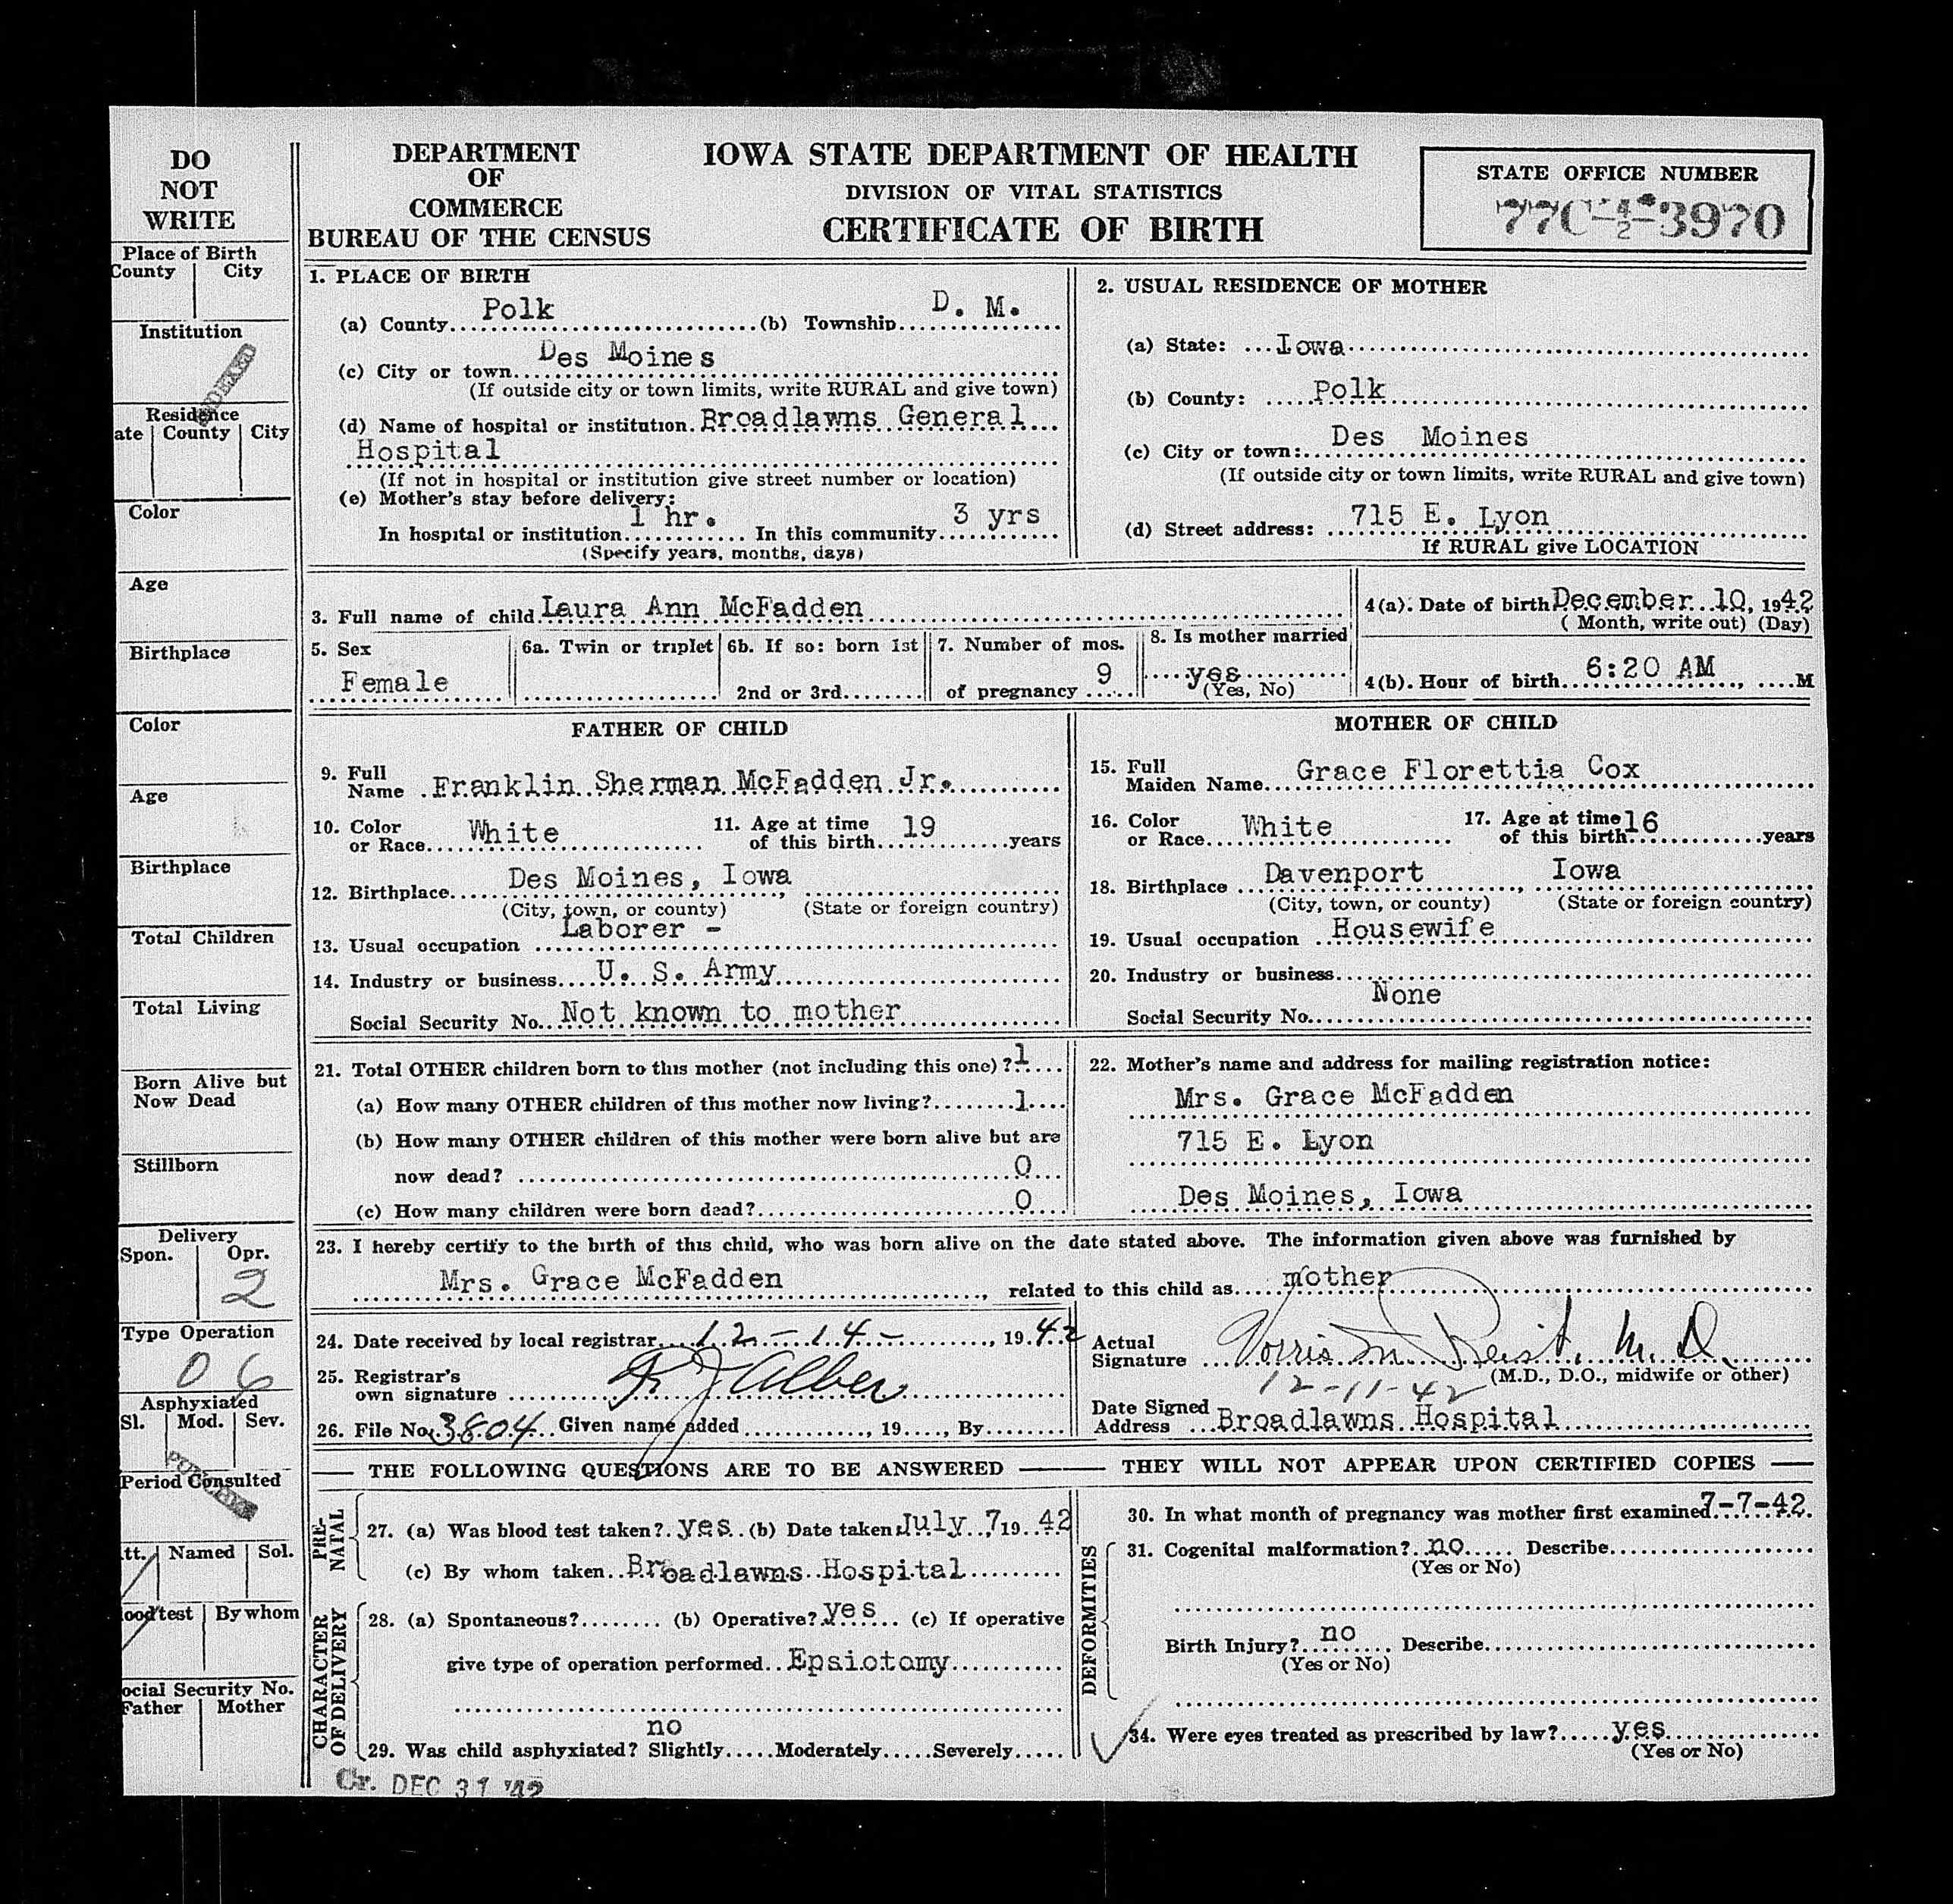 DO
NOT
WRITE
DEPARTMENT
OF
COMMERCE
BUREAU OF THE CENSUS
IOWA STATE DEPARTMENT OF HEALTH
DIVISION OF VITAL STATISTICS
CERTIFICATE OF BIRTH
STATE OFFICE NUMBER
3970
Place of Birth
County City
Institution
INDEXED
Residence
ate County City
Color
Age
Birthplace
Color
Age
Birthplace
Total Children
Total Living
Born Alive but
Now Dead
Stillborn
Delivery
Spon. Opr.
2
Type Operation
0 6
Asphyxiated
Sl. Mod. Sev.
Period Consulted
tt. Named Sol.
ood test By whom
ocial Security No.
Father Mother
1. PLACE OF BIRTH
(a) County Polk (b) Township D. M.
(c) City or town Des Moines
(If outside city or town limits, write RURAL and give town)
(d) Name of hospital or institution. Broadlawns General
Hospital
(If not in hospital or institution give street number or location)
(e) Mother's stay before delivery:
In hospital or institution 1 hr. In this community 3 yrs
(Specify years, months, days)
2. USUAL RESIDENCE OF MOTHER
(a) State: Iowa
(b) County: Polk
(c) City or town: Des Moines
(If outside city or town limits, write RURAL and give town)
(d) Street address: 715 E. Lyon
If RURAL give LOCATION
3. Full name of child Laura Ann McFadden
4(a). Date of birth December 10, 1942
(Month, write out) (Day)
5. Sex
Female
6a. Twin or triplet
6b. If so: born 1st
2nd or 3rd
7. Number of mos.
of pregnancy 9
8. Is mother married
yes
(Yes, No)
4(b). Hour of birth 6:20 AM, M
FATHER OF CHILD
9. Full
Name Franklin Sherman McFadden Jr.
10. Color
or Race White
11. Age at time
of this birth 19 years
12. Birthplace Des Moines, Iowa,
(City, town, or county) (State or foreign country)
13. Usual occupation Laborer -
14. Industry or business U. S. Army
Social Security No. Not known to mother
MOTHER OF CHILD
15. Full
Maiden Name Grace Florettia Cox
16. Color
or Race White
17. Age at time
of this birth 16 years
18. Birthplace Davenport, Iowa
(City, town, or county) (State or foreign country)
19. Usual occupation Housewife
20. Industry or business
None
Social Security No.
21. Total OTHER children born to this mother (not including this one)? 1
(a) How many OTHER children of this mother now living? 1
(b) How many OTHER children of this mother were born alive but are
now dead? 0
(c) How many children were born dead? 0
22. Mother's name and address for mailing registration notice:
Mrs. Grace McFadden
715 E. Lyon
Des Moines, Iowa
23. I hereby certify to the birth of this child, who was born alive on the date stated above. The information given above was furnished by
Mrs. Grace McFadden, related to this child as mother
24. Date received by local registrar 12-14-, 1942
25. Registrar's
own signature Alber
26. File No. 3804 Given name added, 19, By
Actual
Signature Reist, M. D.
(M.D., D.O., midwife or other)
12-11-42
Date Signed
Address Broadlawns Hospital
THE FOLLOWING QUESTIONS ARE TO BE ANSWERED — THEY WILL NOT APPEAR UPON CERTIFIED COPIES
PRE-
NATAL
27. (a) Was blood test taken? yes (b) Date taken July 7 19 42
(c) By whom taken Broadlawns Hospital
CHARACTER
OF DELIVERY
28. (a) Spontaneous? (b) Operative? yes (c) If operative
give type of operation performed Epsiotomy
no
29. Was child asphyxiated? Slightly Moderately Severely
30. In what month of pregnancy was mother first examined 7-7-42.
DEFORMITIES
31. Cogenital malformation? no Describe
(Yes or No)
Birth Injury? no Describe
(Yes or No)
34. Were eyes treated as prescribed by law? yes
(Yes or No)
Cr. DEC 31 '42